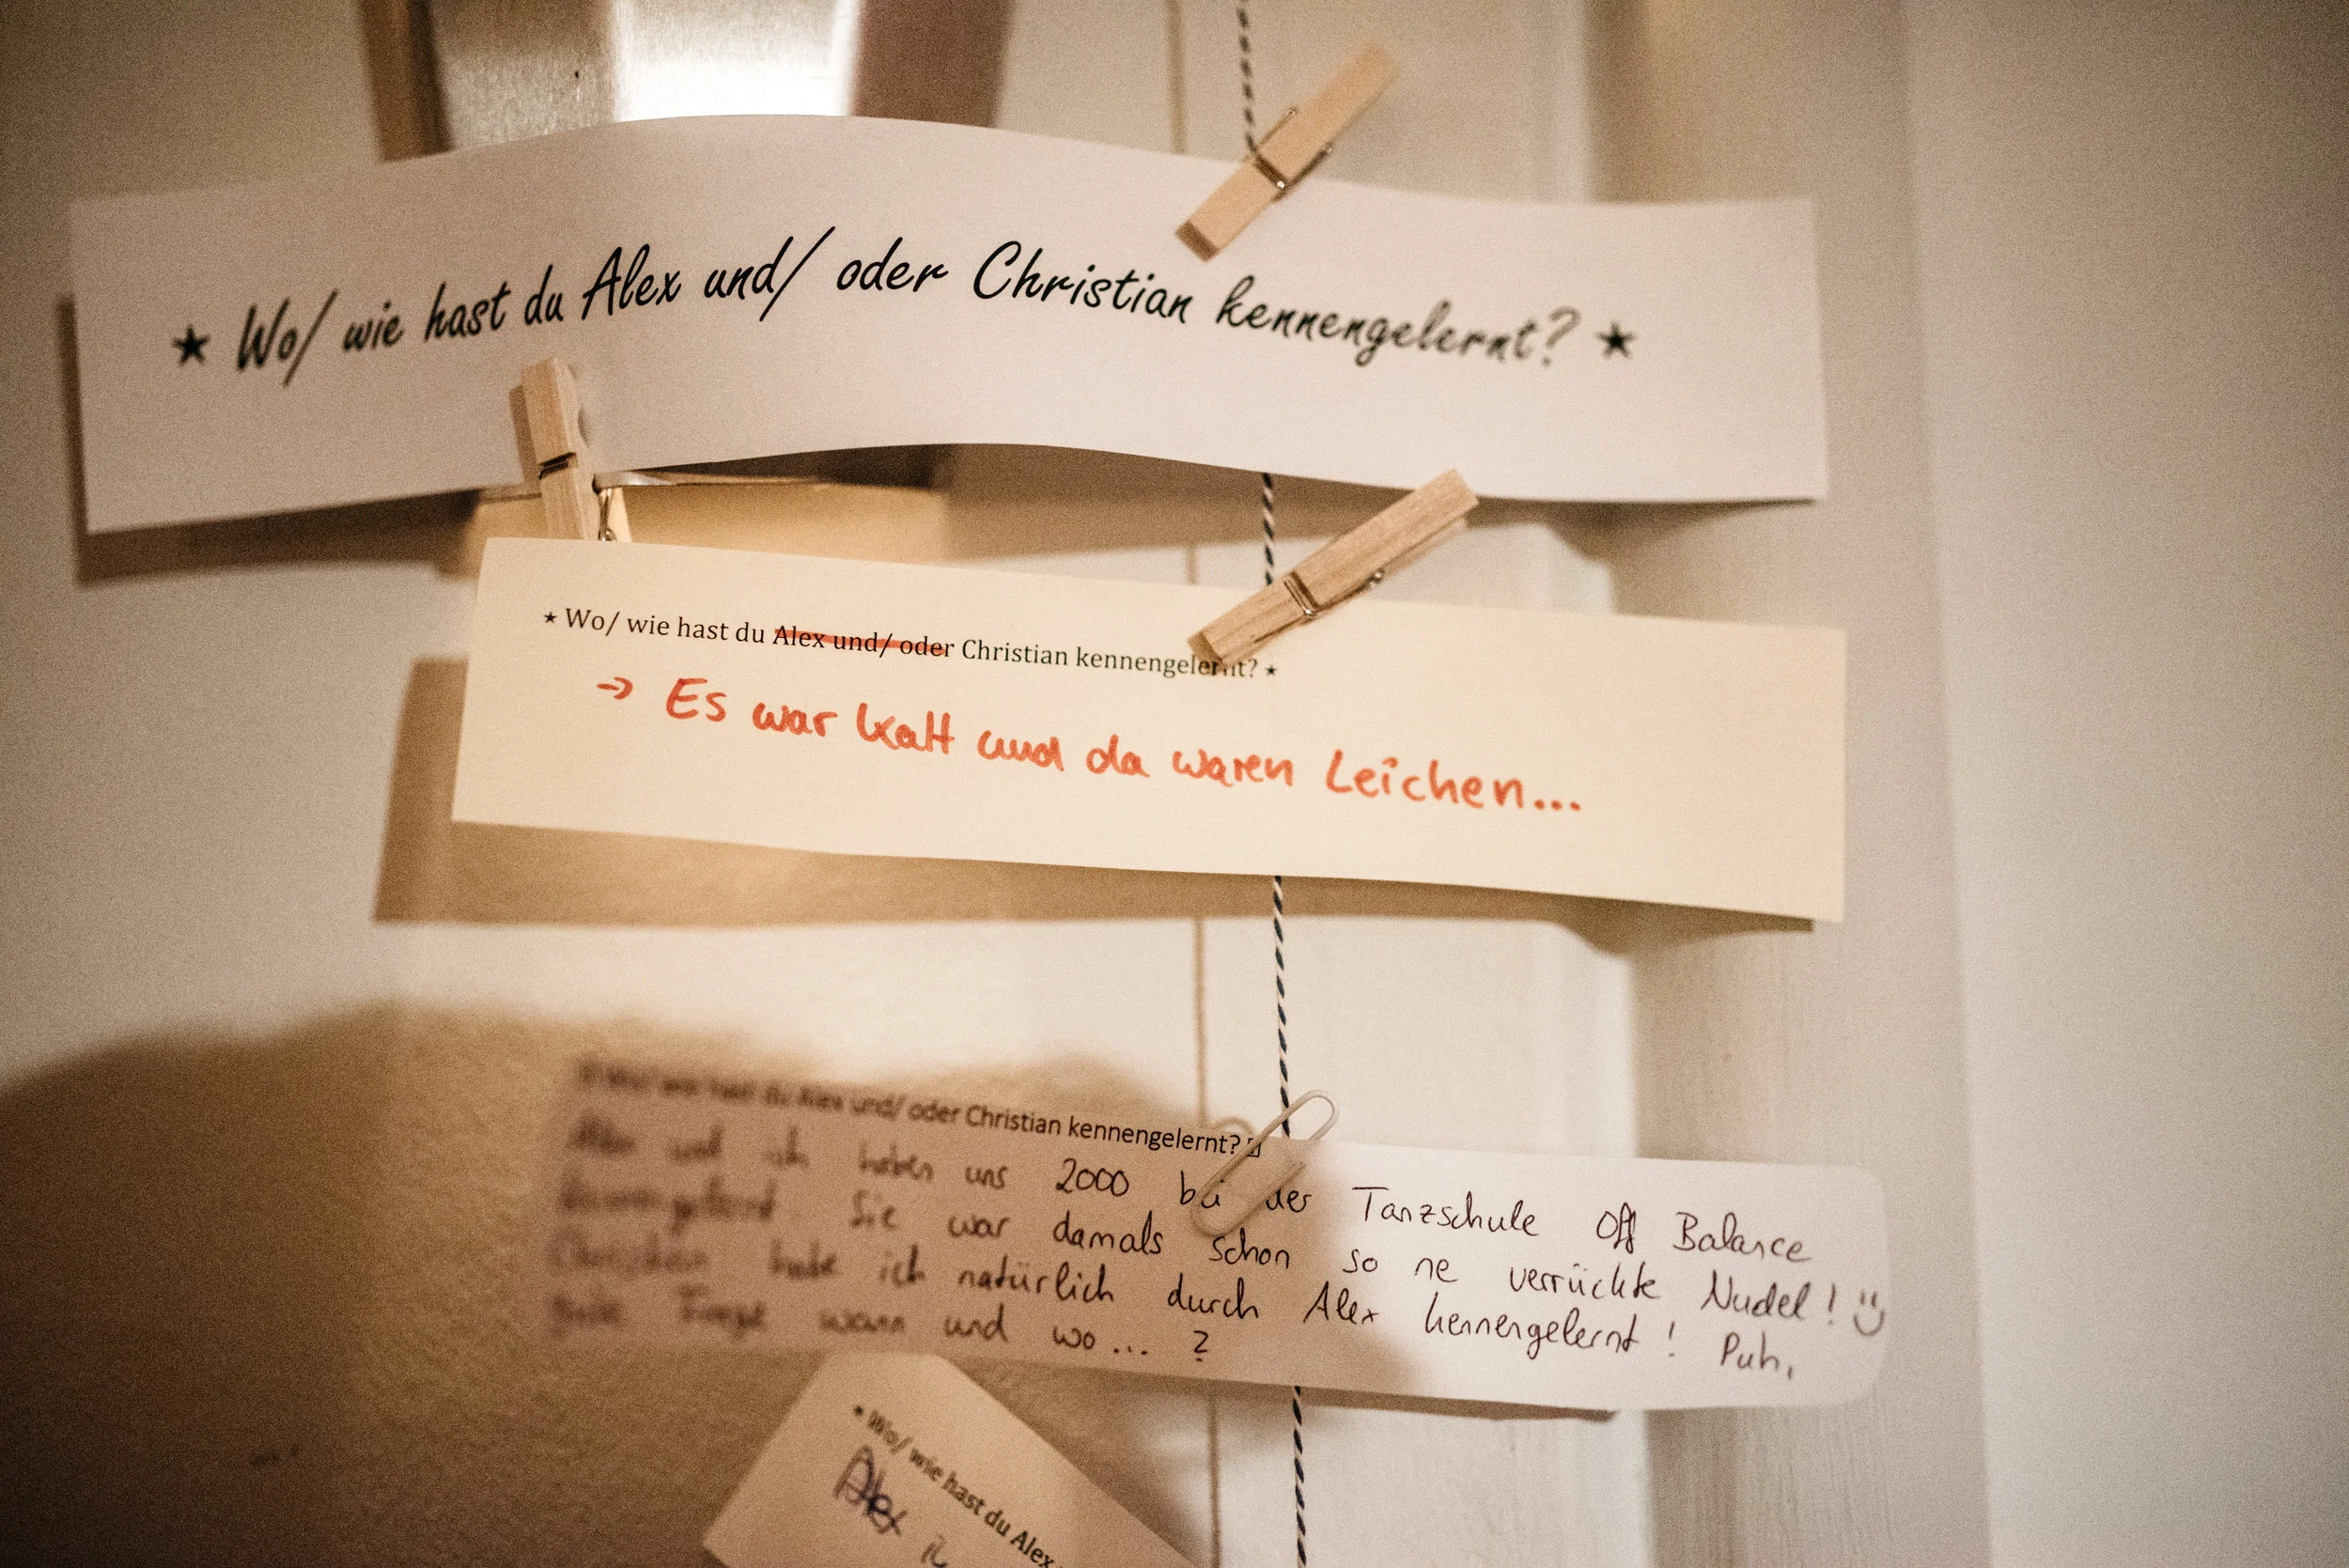 ★ Wo/ wie hast du Alex und/ oder Christian kennengelernt? ★
★ Wo/ wie hast du Alex und/ oder Christian kennengelernt? ★
→ Es war kalt und da waren Leichen...
Wo/ wie hast du Alex und/ oder Christian kennengelernt?
Alex und ich haben uns 2000 bei der Tanzschule Off Balance
kennengelernt. Sie war damals schon so ne verrückte Nudel! :)
Christian habe ich natürlich durch Alex kennengelernt! Puh,
gute Frage wann und wo... ?
★ Wo/ wie hast du Alex
Alex